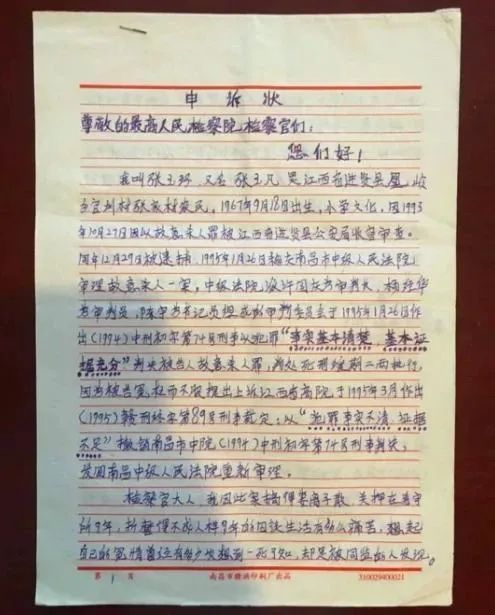 申诉状
尊敬的最高人民检察院检察官们:
您们好!
我叫张玉环 又名 张玉凡 是江西省进贤县凰岭
乡宫圳村张家村农民,1967年9月18日出生,小学文化,因1993
年10月27日因以故意杀人罪被江西省进贤县公安局收容审查。
同年12月29日被逮捕,1995年1月26日被在南昌市中级人民法院
审理故意杀人一案。中级法院 审判长,杨
为审判员, 书记员组成 审判委员会于1995年1月26日作
出(1994)中刑初字第74号刑事以犯罪“事实基本清楚,基本证
据充分”判决被告人故意杀人罪,判处死刑缓期二两执行,
因为被告冤枉而不服提出上诉江西省高院于1995年3月作出
(1995)赣刑终字第89号刑事裁定:以“犯罪事实不清,证据
不足”撤销南昌市中院(1994)中刑初字第74号刑事判决,
发回南昌中级人民法院重新审理。
检察官大人,我因此案搞得妻离子散,关押在看守
所9年,折磨得不成人样9年的囚徒生活有多么痛苦,想起
自己的冤情曾经有多少次想到一死了知,却是被同监的人发现。
第 1 页
南昌市 印刷厂出品
310029400021